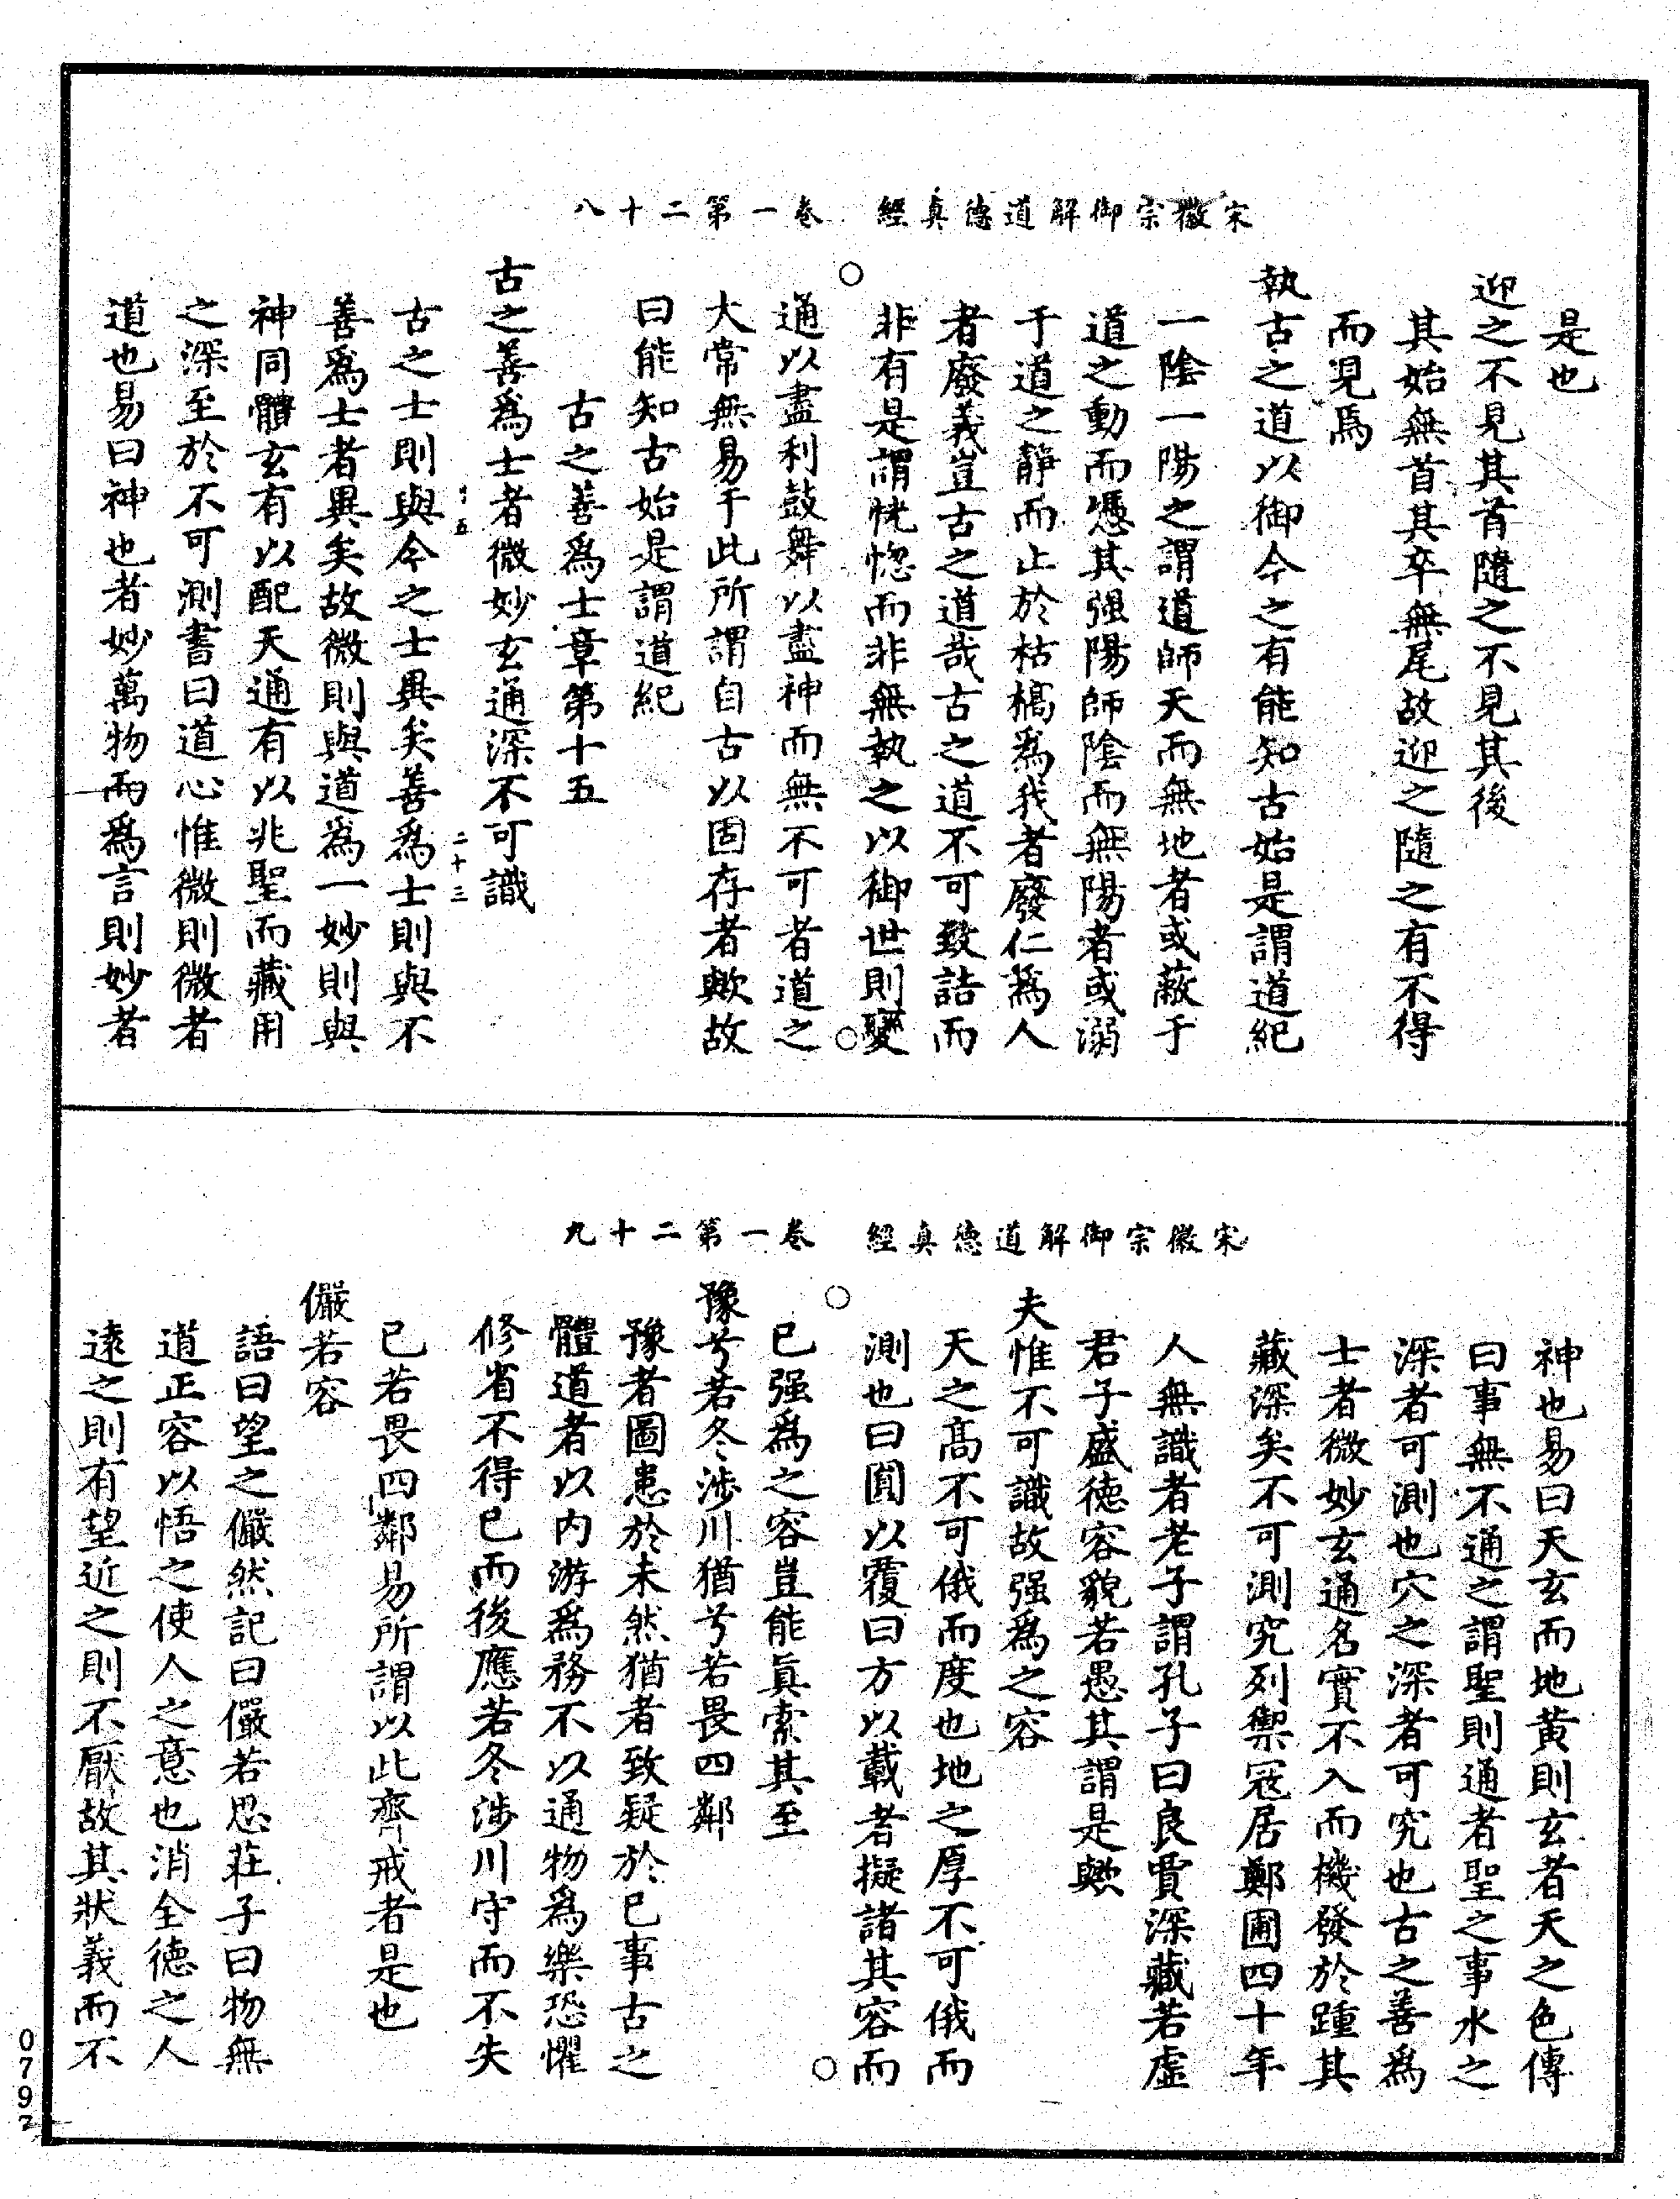 宋徽宗御解道德真經　卷一第二十八
是也
迎之不見其首隨之不見其後
其始無首其卒無尾故迎之隨之有不得
而見焉
執古之道以御今之有能知古始是謂道紀
一陰一陽之謂道師天而無地者或蔽于
道之動而憑其强陽師陰而無陽者或溺
于道之靜而止於枯槁為我者廢仁為人
者廢義豈古之道哉古之道不可致詰而
非有是謂恍惚而非無執之以御世則變
通以盡利鼓舞以盡神而無不可者道之
大常無易于此所謂自古以固存者歟故
曰能知古始是謂道紀
古之善為士章第十五
古之善為士者微妙玄通深不可識
二十三
古之士則與今之士異矣善為士則與不
善為士者異矣故微則與道為一妙則與
神同體玄有以配天通有以兆聖而藏用
之深至於不可測書曰道心惟微則微者
道也易曰神也者妙萬物而為言則妙者
宋徽宗御解道德真經　卷一第二十九
神也易曰天玄而地黄則玄者天之色傳
曰事無不通之謂聖則通者聖之事水之
深者可測也穴之深者可究也古之善為
士者微妙玄通名實不入而機發於踵其
藏深矣不可測究列禦寇居鄭圃四十年
人無識者老子謂孔子曰良賈深藏若虛
君子盛德容貌若愚其謂是歟
夫惟不可識故强為之容
天之高不可俄而度也地之厚不可俄而
測也曰圓以覆曰方以載者擬諸其容而
已强為之容豈能真索其至
豫兮若冬涉川猶兮若畏四鄰
豫者圖患於未然猶者致疑於已事古之
體道者以內游為務不以通物為樂恐懼
修省不得已而後應若冬涉川守而不失
已若畏四鄰易所謂以此齊戒者是也
儼若容
語曰望之儼然記曰儼若思莊子曰物無
道正容以悟之使人之意也消全德之人
遠之則有望近之則不厭故其狀義而不